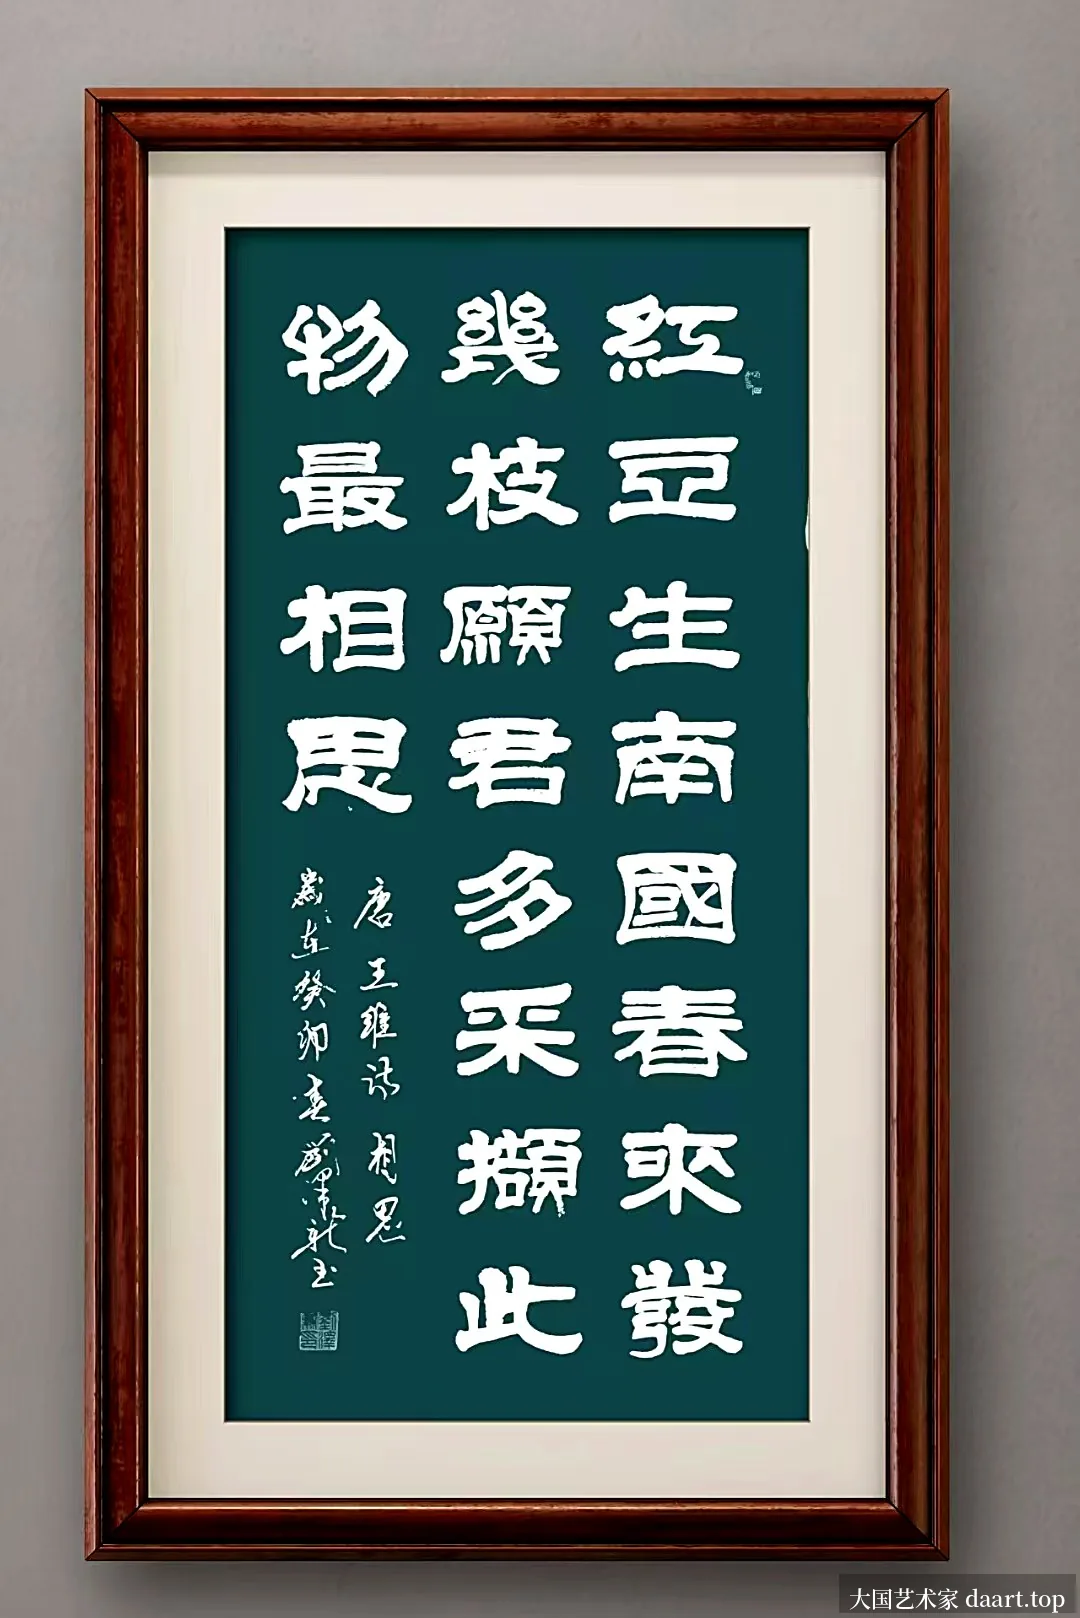 紅豆生南國春來發
幾枝願君多采擷此
物最相思
唐王維詩相思
歲在癸卯春劉
大国艺术家 daart.top